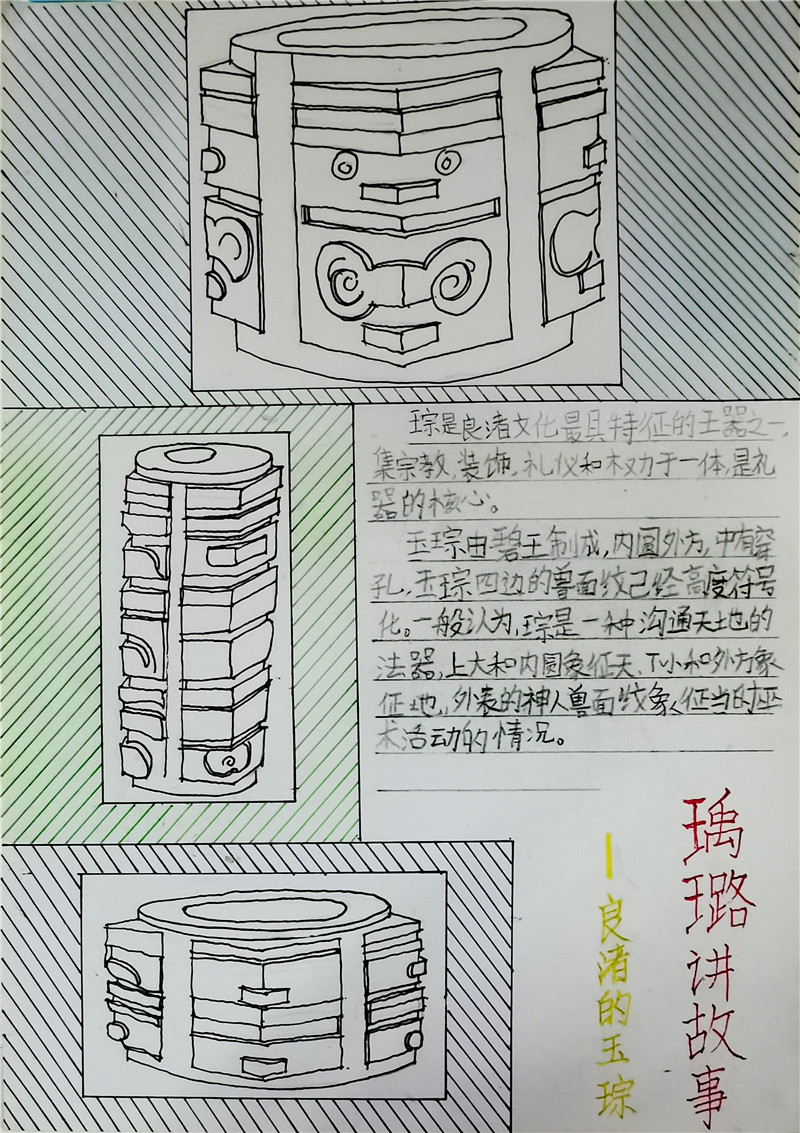 琮是良渚文化最具特征的玉器之一,
集宗教,装饰,礼仪和权力于一体,是礼
器的核心。
玉琮由碧玉制成,内圆外方,中有穿
孔,玉琮四边的兽面纹已经高度符号
化。一般认为,琮是一种沟通天地的
法器,上大和内圆象征天、下小和外方象
征地,外表的神人兽面纹象征当时巫
术活动的情况。
瑀璐讲故事
—良渚的玉琮